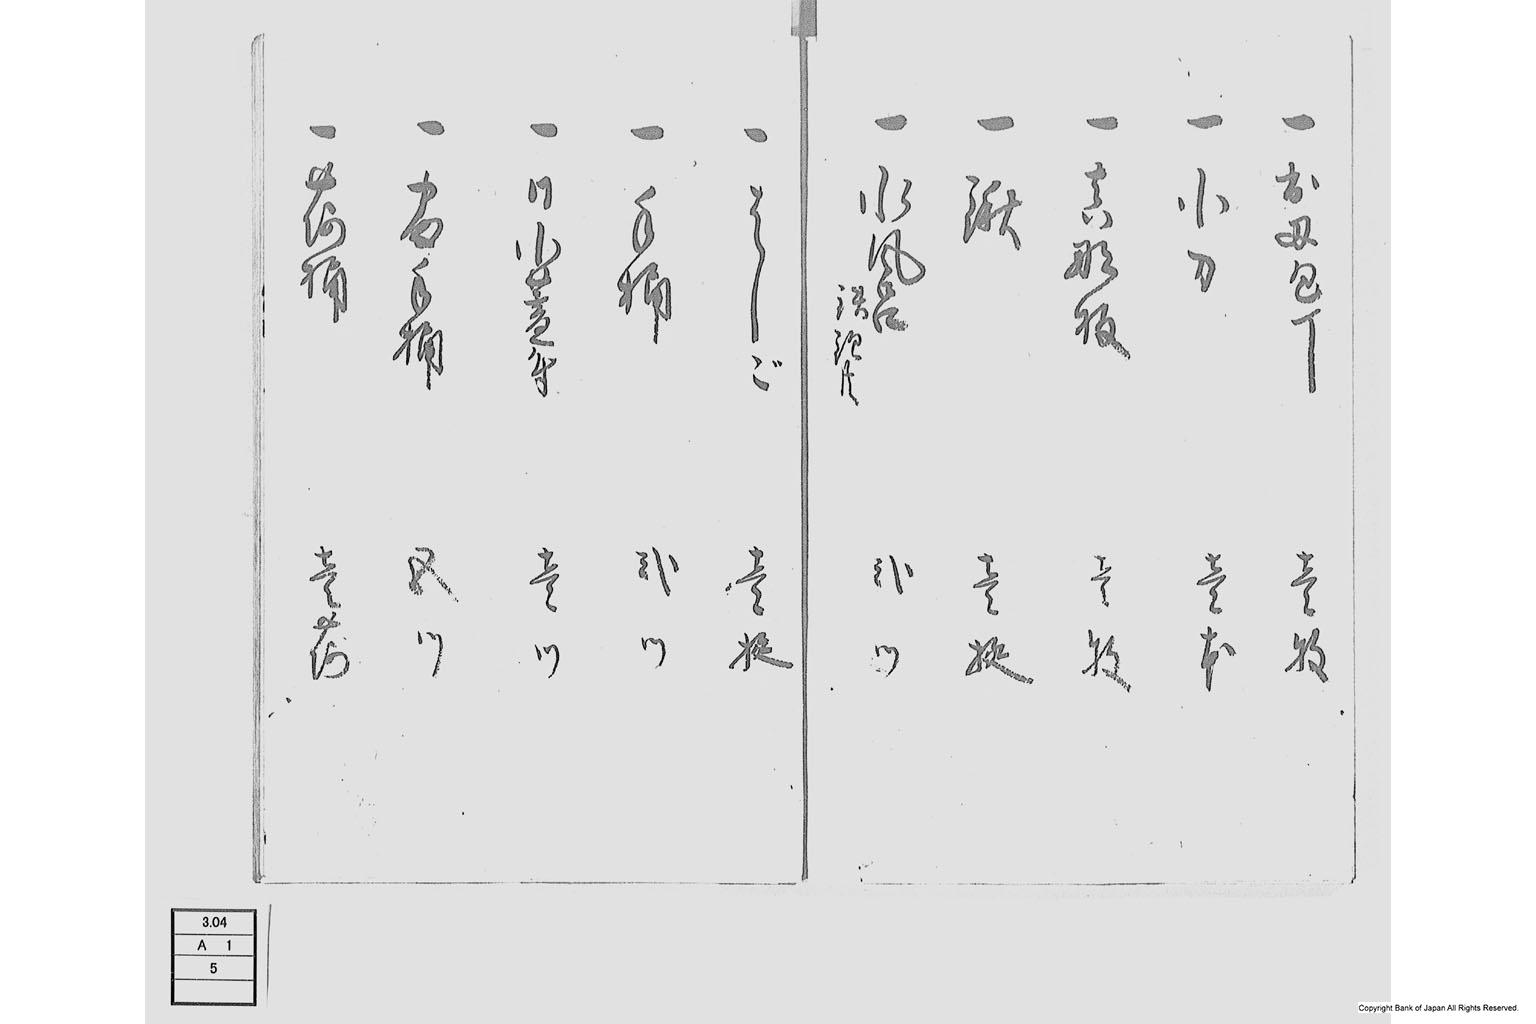 一 お刄包丁 壱枚
一 小刀 壱本
一 真那板 壱枚
一 鍬 壱挺
一 水風呂 弐ツ
一 はしご 壱挺
一 手桶 弐ツ
一 同小 壱ツ
一 手桶 五ツ
一 荷桶 壱荷
3.04
A 1
5
Copyright Bank of Japan All Rights Reserved.